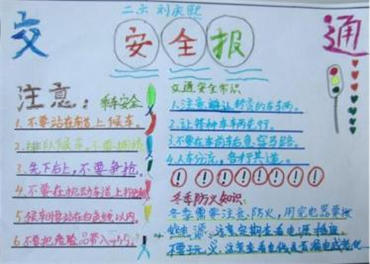 二六 刘庆熙
交 安全报 通
注意：乘车安全
1.不要站在车道上候车。
2.排队候车，不要拥挤
3.先下后上，不要争抢。
4.不要在机动车道上
5.候车时等站在白色线以内。
6.不要把危险品带入
交通安全常识
1.注意避让
2.让特种车车两先行。
3.不要在车前车后急穿马路。
4.人车分流，各行其道。
冬季防火知识：
冬季需要注意防火，用完电器要
电源，注意定期查看电源插座